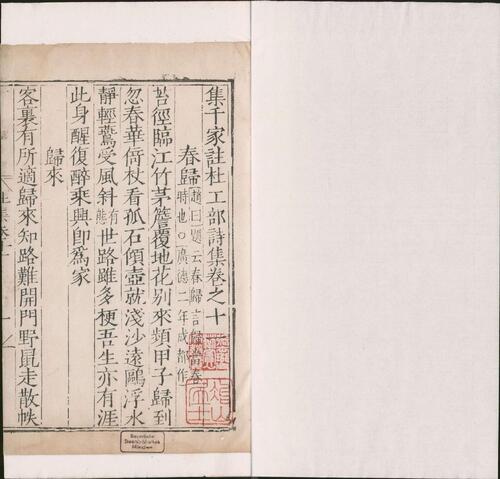 集千家註杜工部詩集卷之十
春歸趙曰題云春歸言歸當春
時也○廣德二年成都作
苔徑臨江竹茅簷覆地花别來頻甲子歸到
忽春華倚杖看孤石傾壺就淺沙遠鷗浮水
靜輕鷰受風斜有態世路雖多梗吾生亦有涯
此身醒復醉乗興即爲家
歸來
客裏有所適歸來知路難開門野鼠走散帙
Bayerische
Staatsbibliothek
München